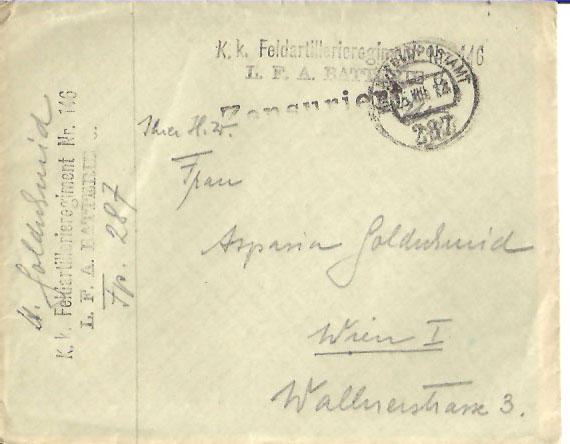 K. k. Feldartillerieregiment Nr. 146
L. F. A. BATTERIE
Zensuriert
FELDPOSTAMT
287
Ihrer H. w.
Frau
Aspasia Goldschmid
Wien I
Wallnerstrasse 3.
Goldschmid
K. k. Feldartillerieregiment Nr. 146
L. F. A. BATTERIE
Fp. 287